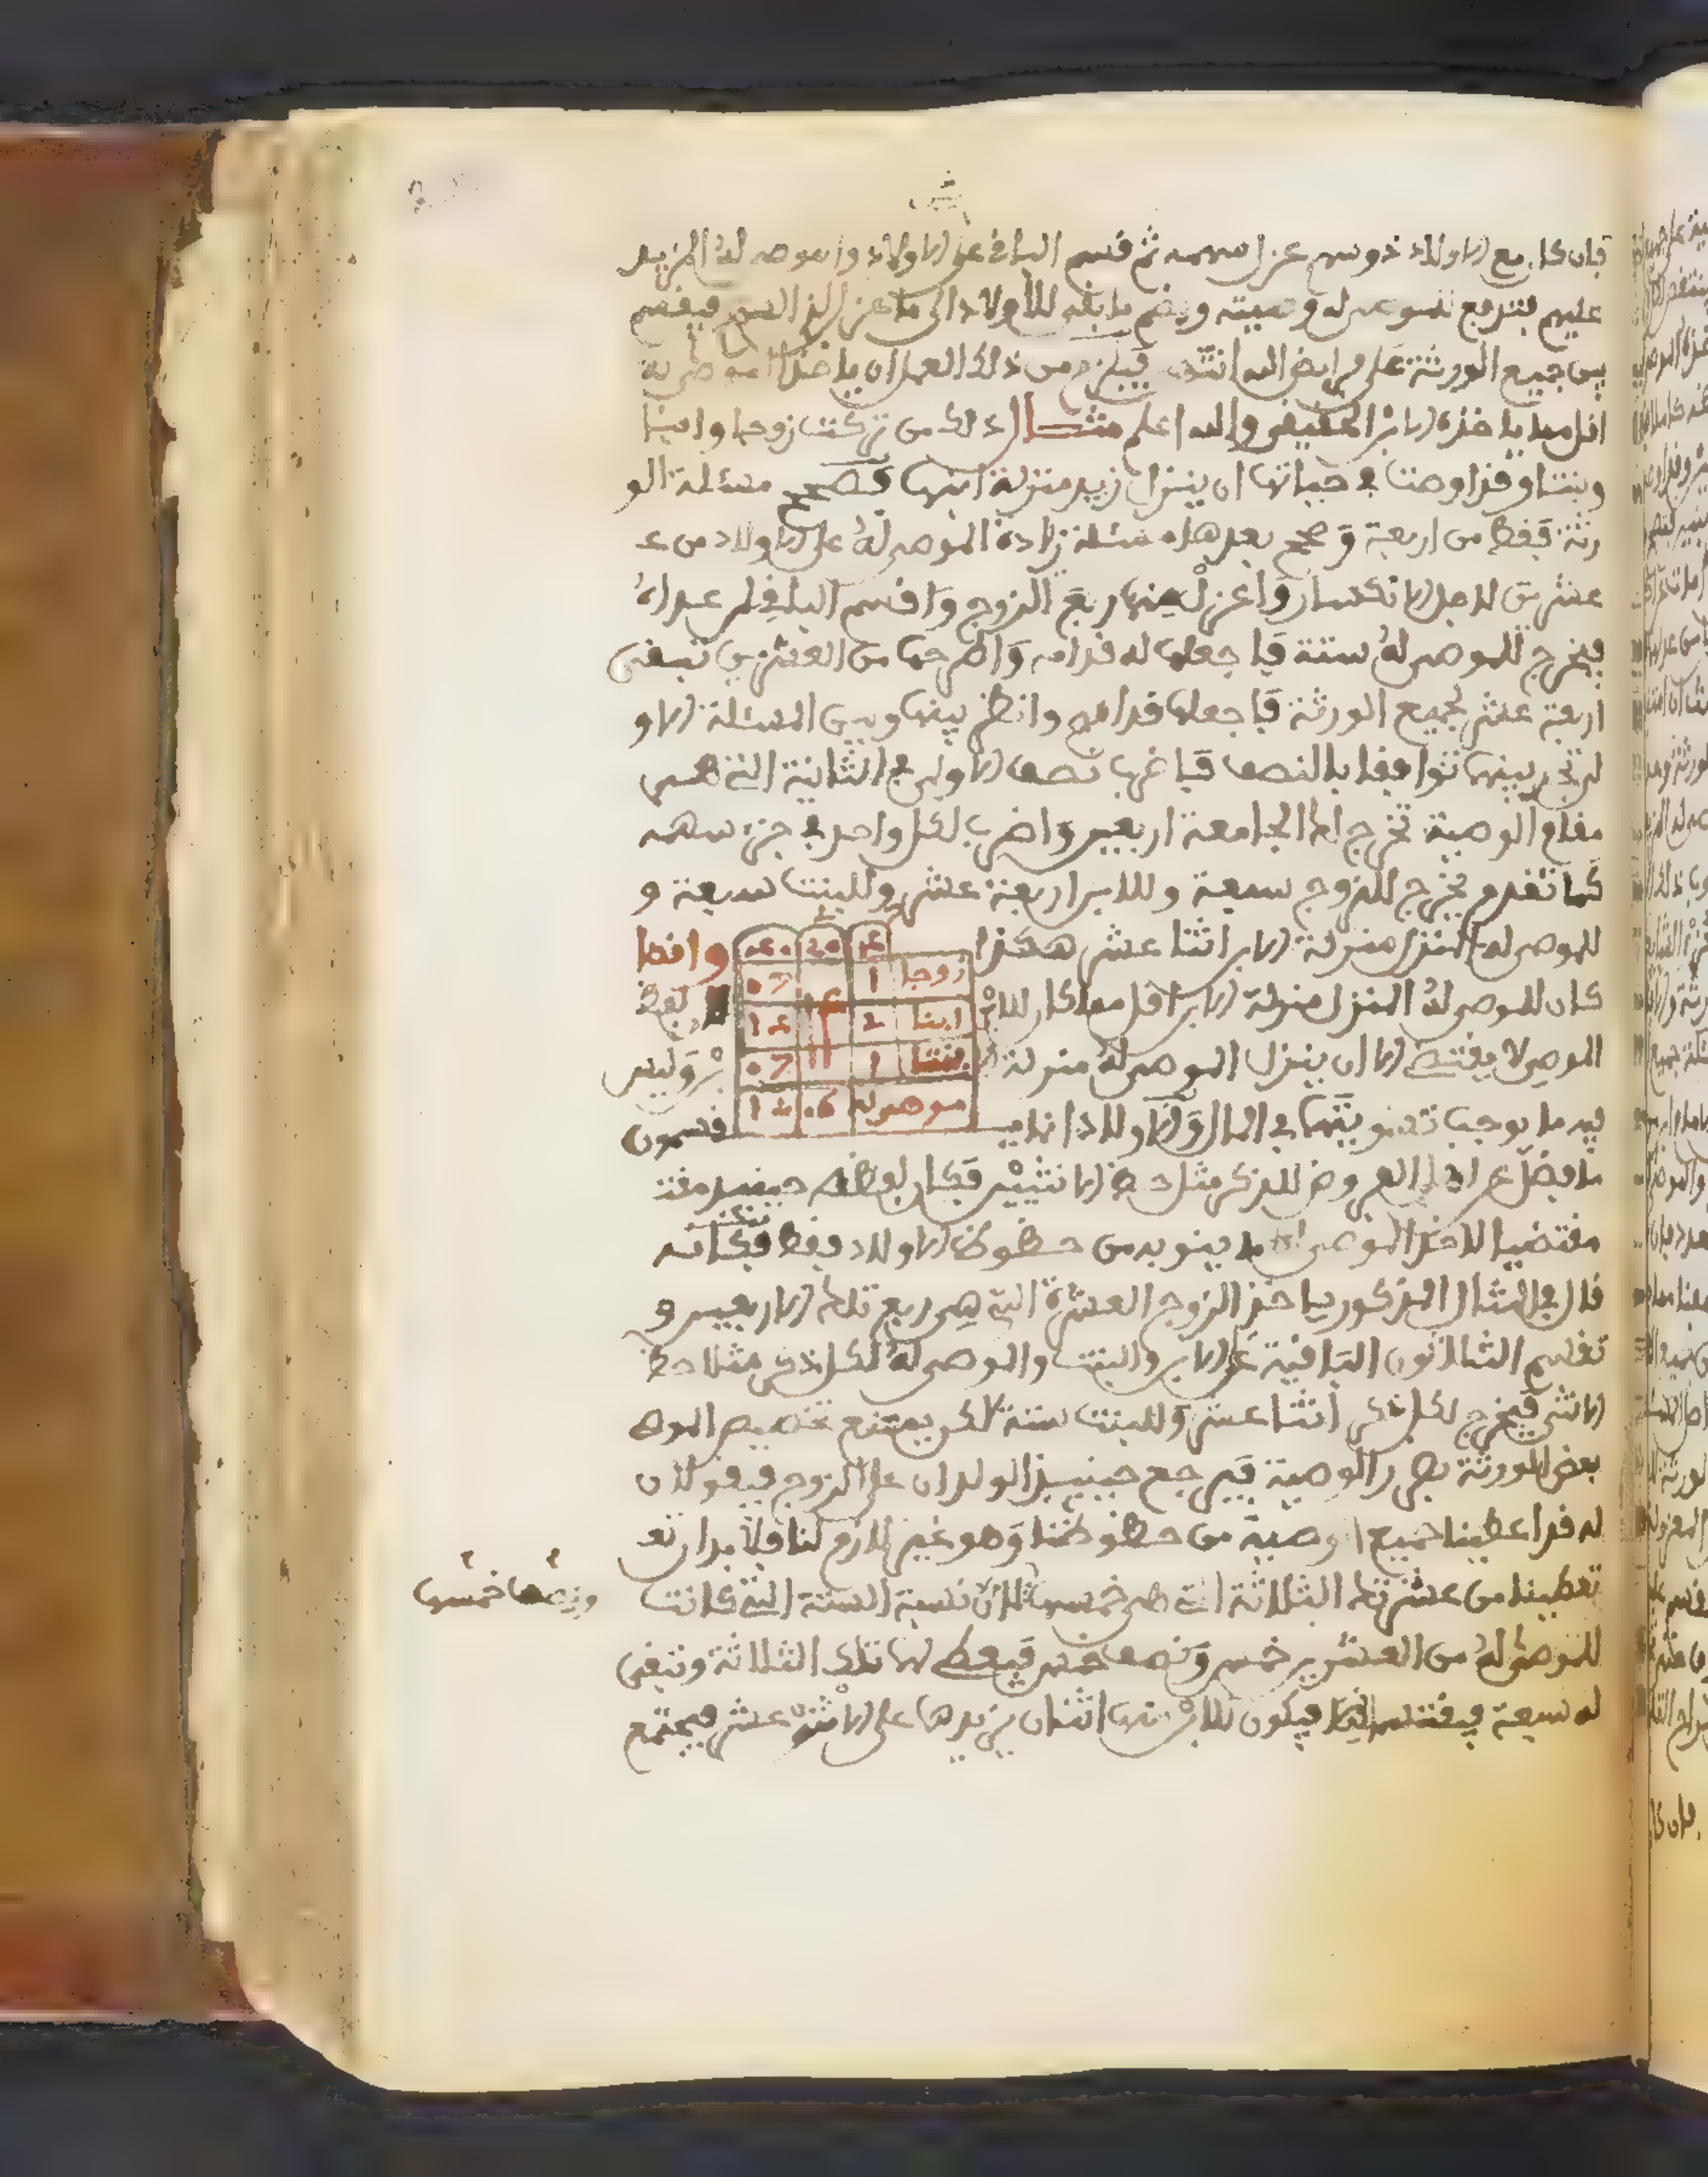 فإن كان مع الأولاد ذو سهم عزل سهمه ثم قسم الباقي على الأولاد والموصى له المزيد
عليهم فتدفع للموصى له وصيته ويضم ما بقي للأولاد إلى ما عزل لذي السهم فيقسم
بين جميع الورثة على فرائض الله انتهى فيلزم من ذلك العمل أن يأخذ الموصى له
أقل مما يأخذه الابن الحقيقي والله أعلم مثال ذلك من تركت زوجا وابنا
وبنتا وقد أوصت في حياتها أن ينزل زيد منزلة ابنها فصحح مسئلة الو
رثة فقط من أربعة وصحح بعد هذه مسئلة زيادة الموصى له على الأولاد من ع
عشرين لأجل الانكسار واعزل منها ربع الزوج واقسم الباقي على عداه
فيخرج للموصى له ستة فاجعلها له قدامه واطرحها من العشرين تبقى
أربعة عشر لجميع الورثة فاجعلها قدامهم وانظر بينها وبين المسئلة الاو
لى تجد بينهما توافقا بالنصف فاضرب نصف الأولى في الثانية التي هي
مقام الوصية تخرج لك الجامعة أربعين واضرب لكل واحد في جزء سهمه
كما تقدم يخرج للزوج سبعة وللابن أربعة عشر وللبنت سبعة و
للموصى له المنزل منزلة الابن اثنا عشر هكذا
٤ 20 ٤٠ وإنما
زوجا 1 07
ابنا 2 1٤ 1٤
بنتا 1 07
موصى له 06 12
كان للموصى له المنزل منزلة الابن أقل مما كان للابن لفظ
الموصي لا يقتضي إلا أن ينزل الموصى له منزلة الابن وليس
فيه ما يوجب تسويتهما في المال والأولاد إنما يقسمون
ما فضل عن أهل الفروض للذكر مثل حظ الأنثيين فكان لفظه حينئذ مقت
مقتضيا لأخذ الموصى له ما ينوبه من حظوظ الأولاد فقط فكأنه
قال في المثال المذكور يأخذ الزوج العشرة التي هي ربع تلك الأربعين و
تقسم الثلاثون الباقية على الابن والبنت والموصى له لكل ذكر مثلا حظ
الأنثى فيخرج لكل ذكر اثنا عشر وللبنت ستة لكن يمتنع تخصيص الموصي
بعض الورثة بضرر الوصية فيرجع حينئذ الولدان على الزوج فيقولان
له قد أعطينا جميع الوصية من حظوظنا وهو غير لازم لنا فلا بد أن تع
تعطينا من عشرتك الثلاثة التي هي خمسها لأن نسبة الستة التي كانت
ونصف خمسها
للموصى له من العشرين خمس ونصف خمس فيعطي لهما تلك الثلاثة وتبقى
له سبعة فيقتسمانها فيكون للابن منها اثنان يزيدها على الاثني عشر فيجتمع